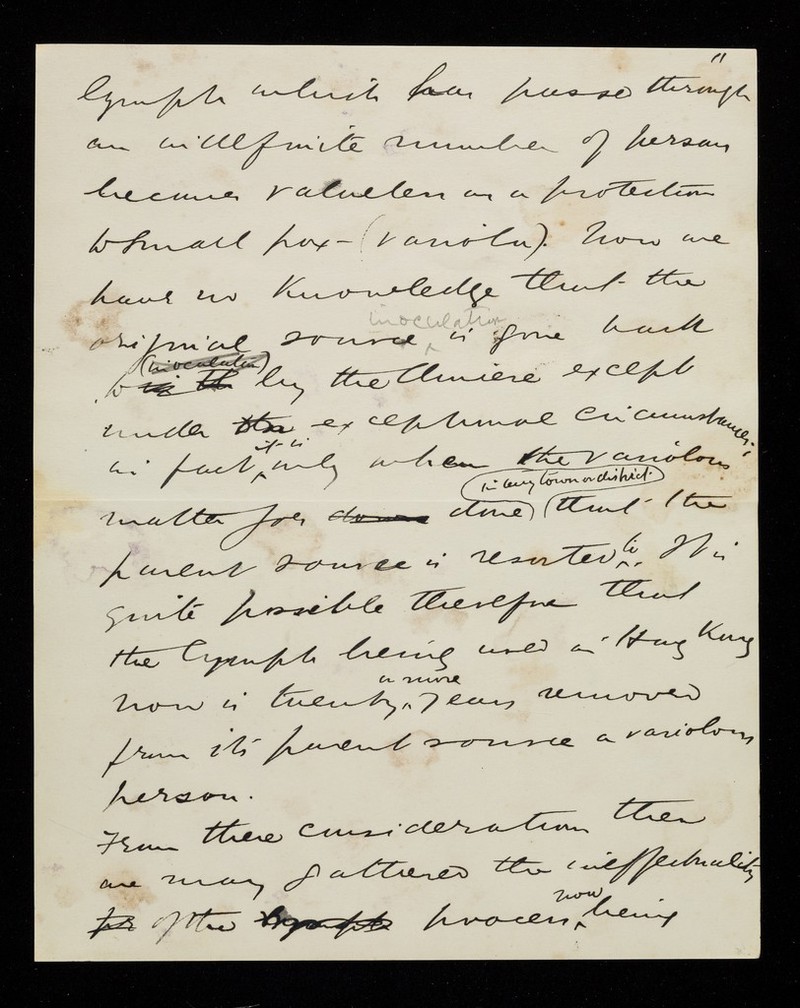 "
lymph which has passed through
an indefinite number of persons
becomes valueless as a protection
to small pox - (variola). Now we
have no knowledge that the
inoculation
original source is gone back
(inoculation)
to in the by the Chinese except
under the exceptional circumstances;
it is
in fact, only when the variolous
in any town or district
matter for done (that the
parent source is resorted to. It is
quite possible therefore that
the lymph being used in Hong Kong
or more
now is twenty years removed
from its parent source a variolous
person.
From these considerations then
we may gathered the ineffectuality
of the lymph process now being